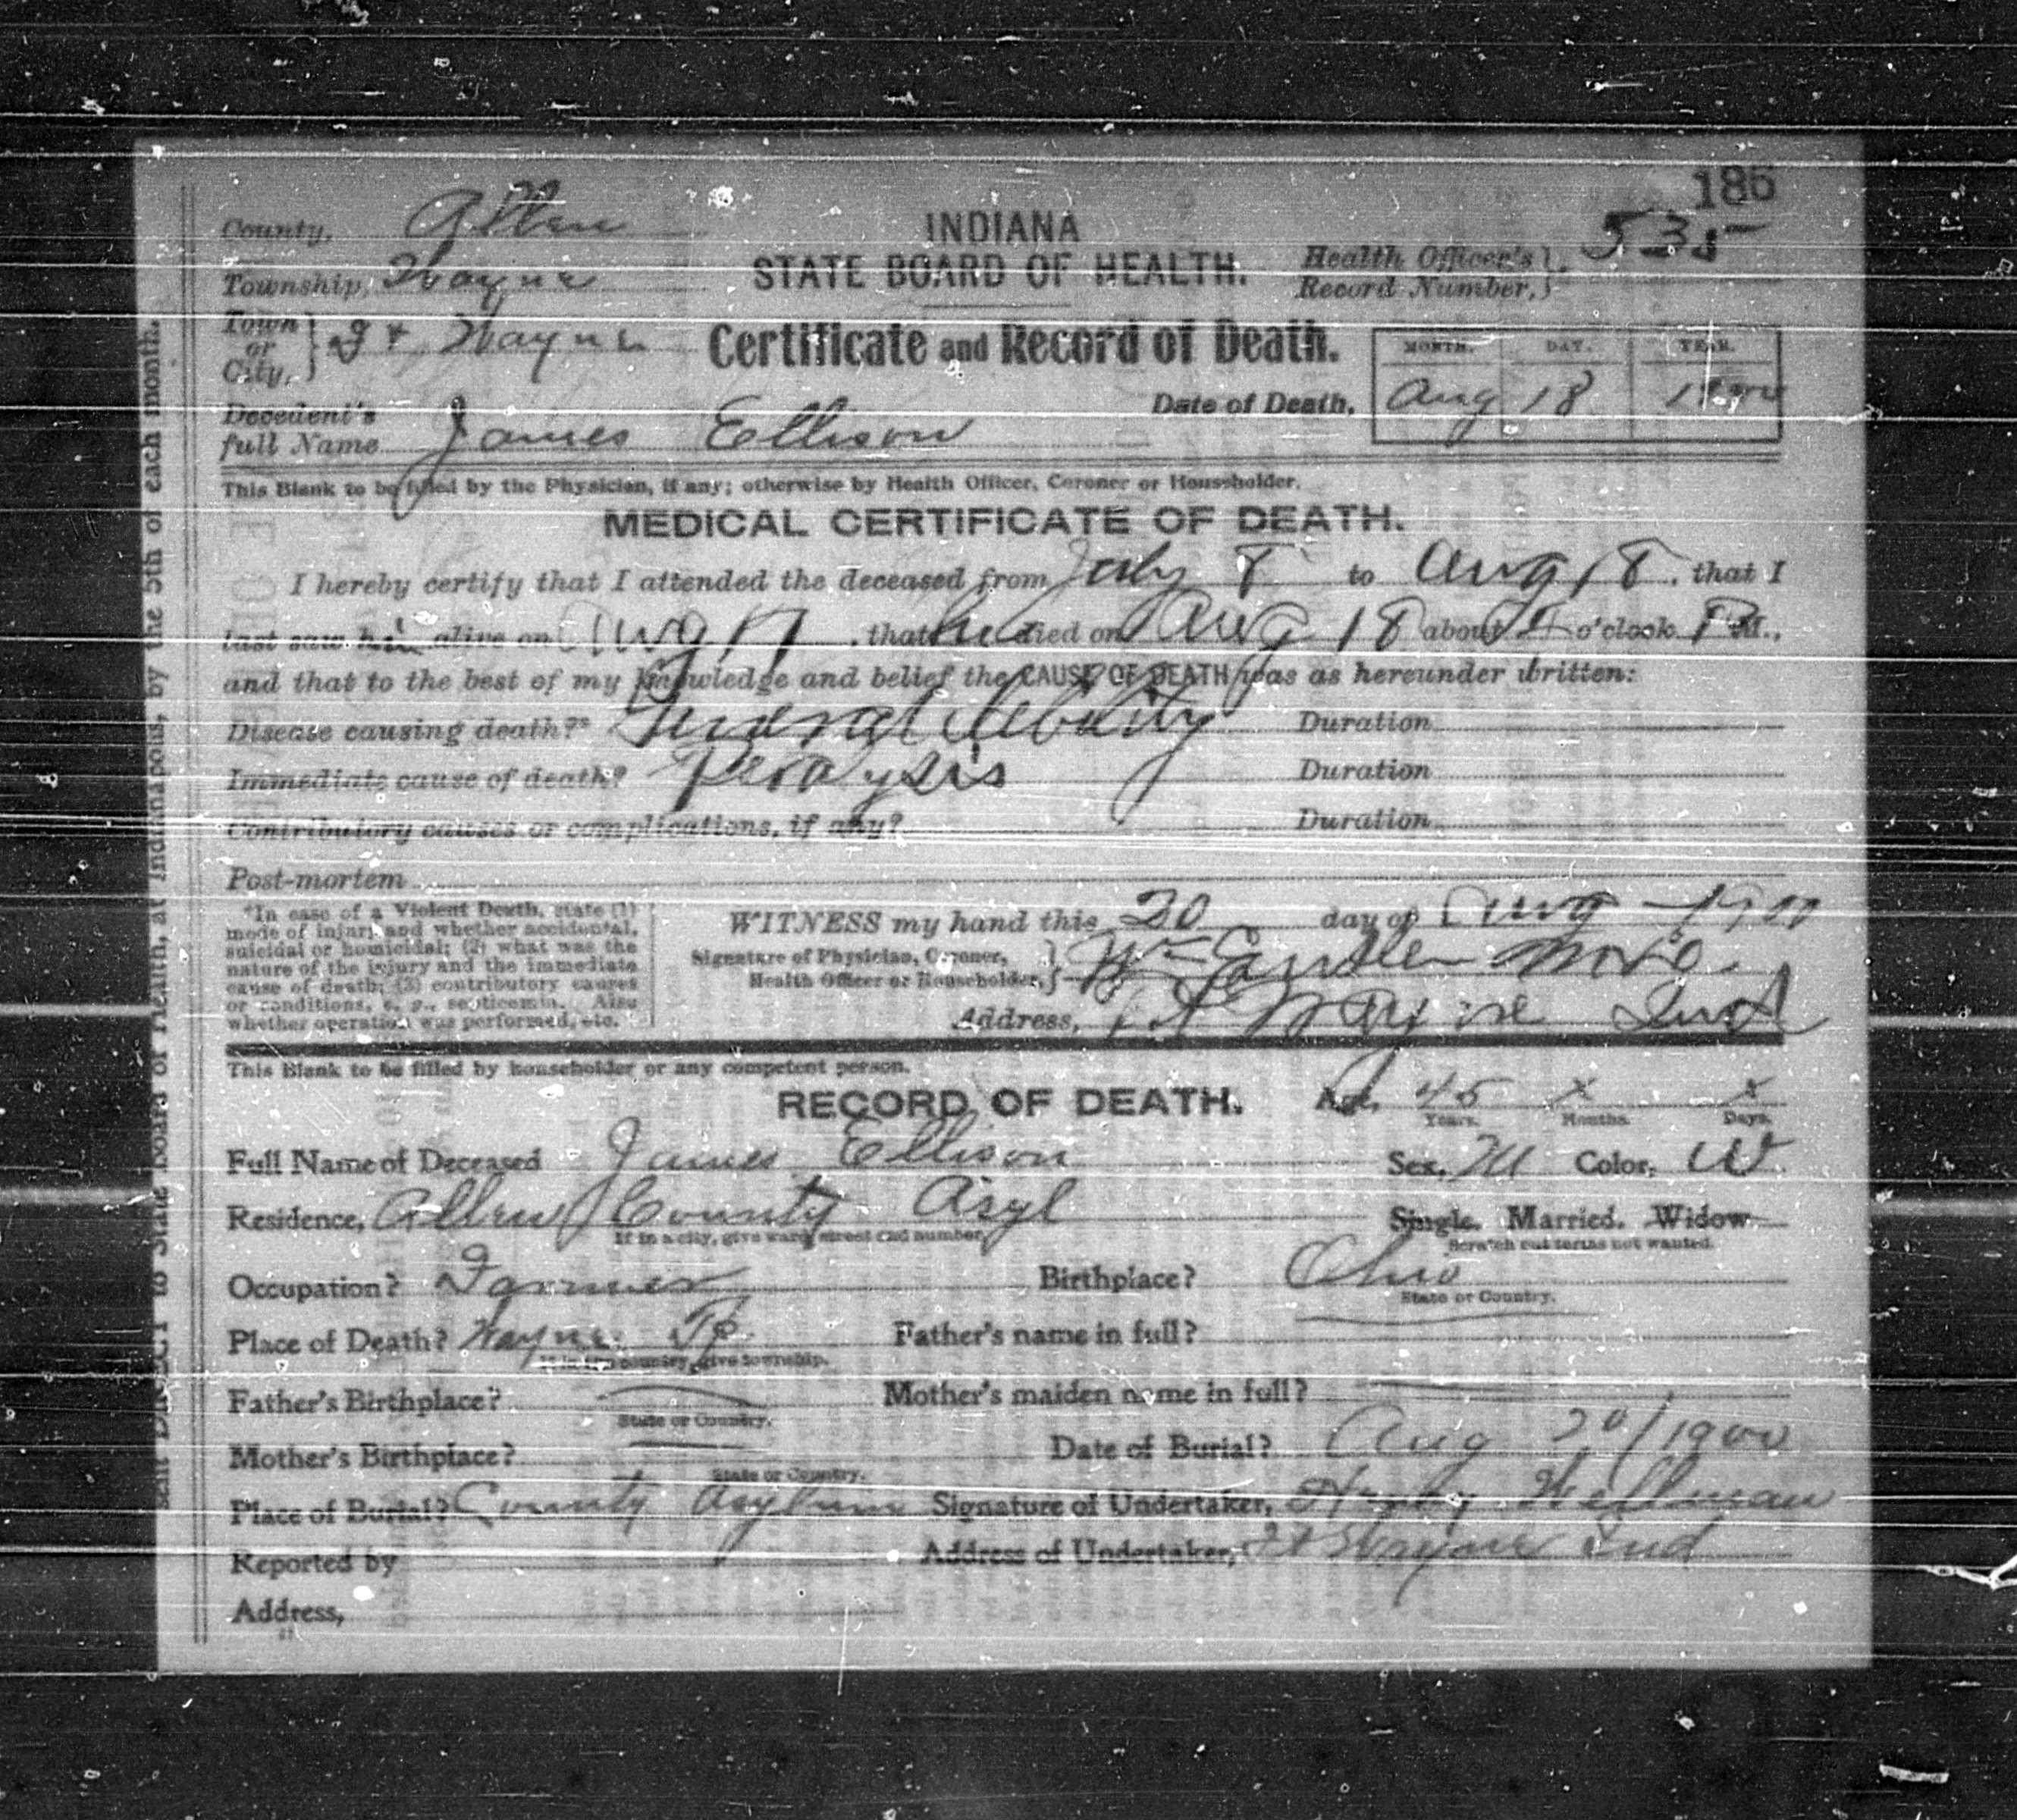 186
County, Allen
INDIANA
STATE BOARD OF HEALTH.
Health Officer's Record Number, 535
Township, Wayne
Town or City, Ft Wayne
Certificate and Record of Death.
MONTH. DAY. YEAR.
Date of Death, Aug 18 1900
Decedent's full Name James Ellison
This Blank to be filled by the Physician, if any; otherwise by Health Officer, Coroner or Householder.
MEDICAL CERTIFICATE OF DEATH.
I hereby certify that I attended the deceased from July 8 to Aug 18, that I
last saw him alive on Aug 17, that he died on Aug 18 about o'clock P M.,
and that to the best of my knowledge and belief the CAUSE OF DEATH was as hereunder written:
Disease causing death?* General debility Duration
Immediate cause of death? Duration
Contributory causes or complications, if any? Duration
Post-mortem
*In case of a Violent Death, state (1)
mode of injury and whether accidental,
suicidal or homicidal; (2) what was the
nature of the injury and the immediate
cause of death; (3) contributory causes
or conditions, e. g., septicemia. Also
whether operation was performed, etc.
WITNESS my hand this 20 day of Aug 1900
Signature of Physician, Coroner,
Health Officer or Householder, Wm
Address, Ft Wayne Ind
This Blank to be filled by householder or any competent person.
RECORD OF DEATH. 45 x x
Years. Months. Days.
Full Name of Deceased James Ellison Sex, M Color, W
Residence, Allen County Asyl Single. Married. Widow
If in a city, give ward, street and number. Scratch out terms not wanted.
Occupation? Farmer Birthplace? Ohio
State or Country.
Place of Death? Wayne Tp Father's name in full?
If in the country, give township.
Father's Birthplace? Mother's maiden name in full?
State or Country.
Mother's Birthplace? Date of Burial? Aug 20/1900
State or Country.
Place of Burial? County Asylum Signature of Undertaker, Wellman
Reported by Address of Undertaker, Ft Wayne Ind
Address,
sent DIRECT to State Board of Health, at Indianapolis, by the 5th of each month.